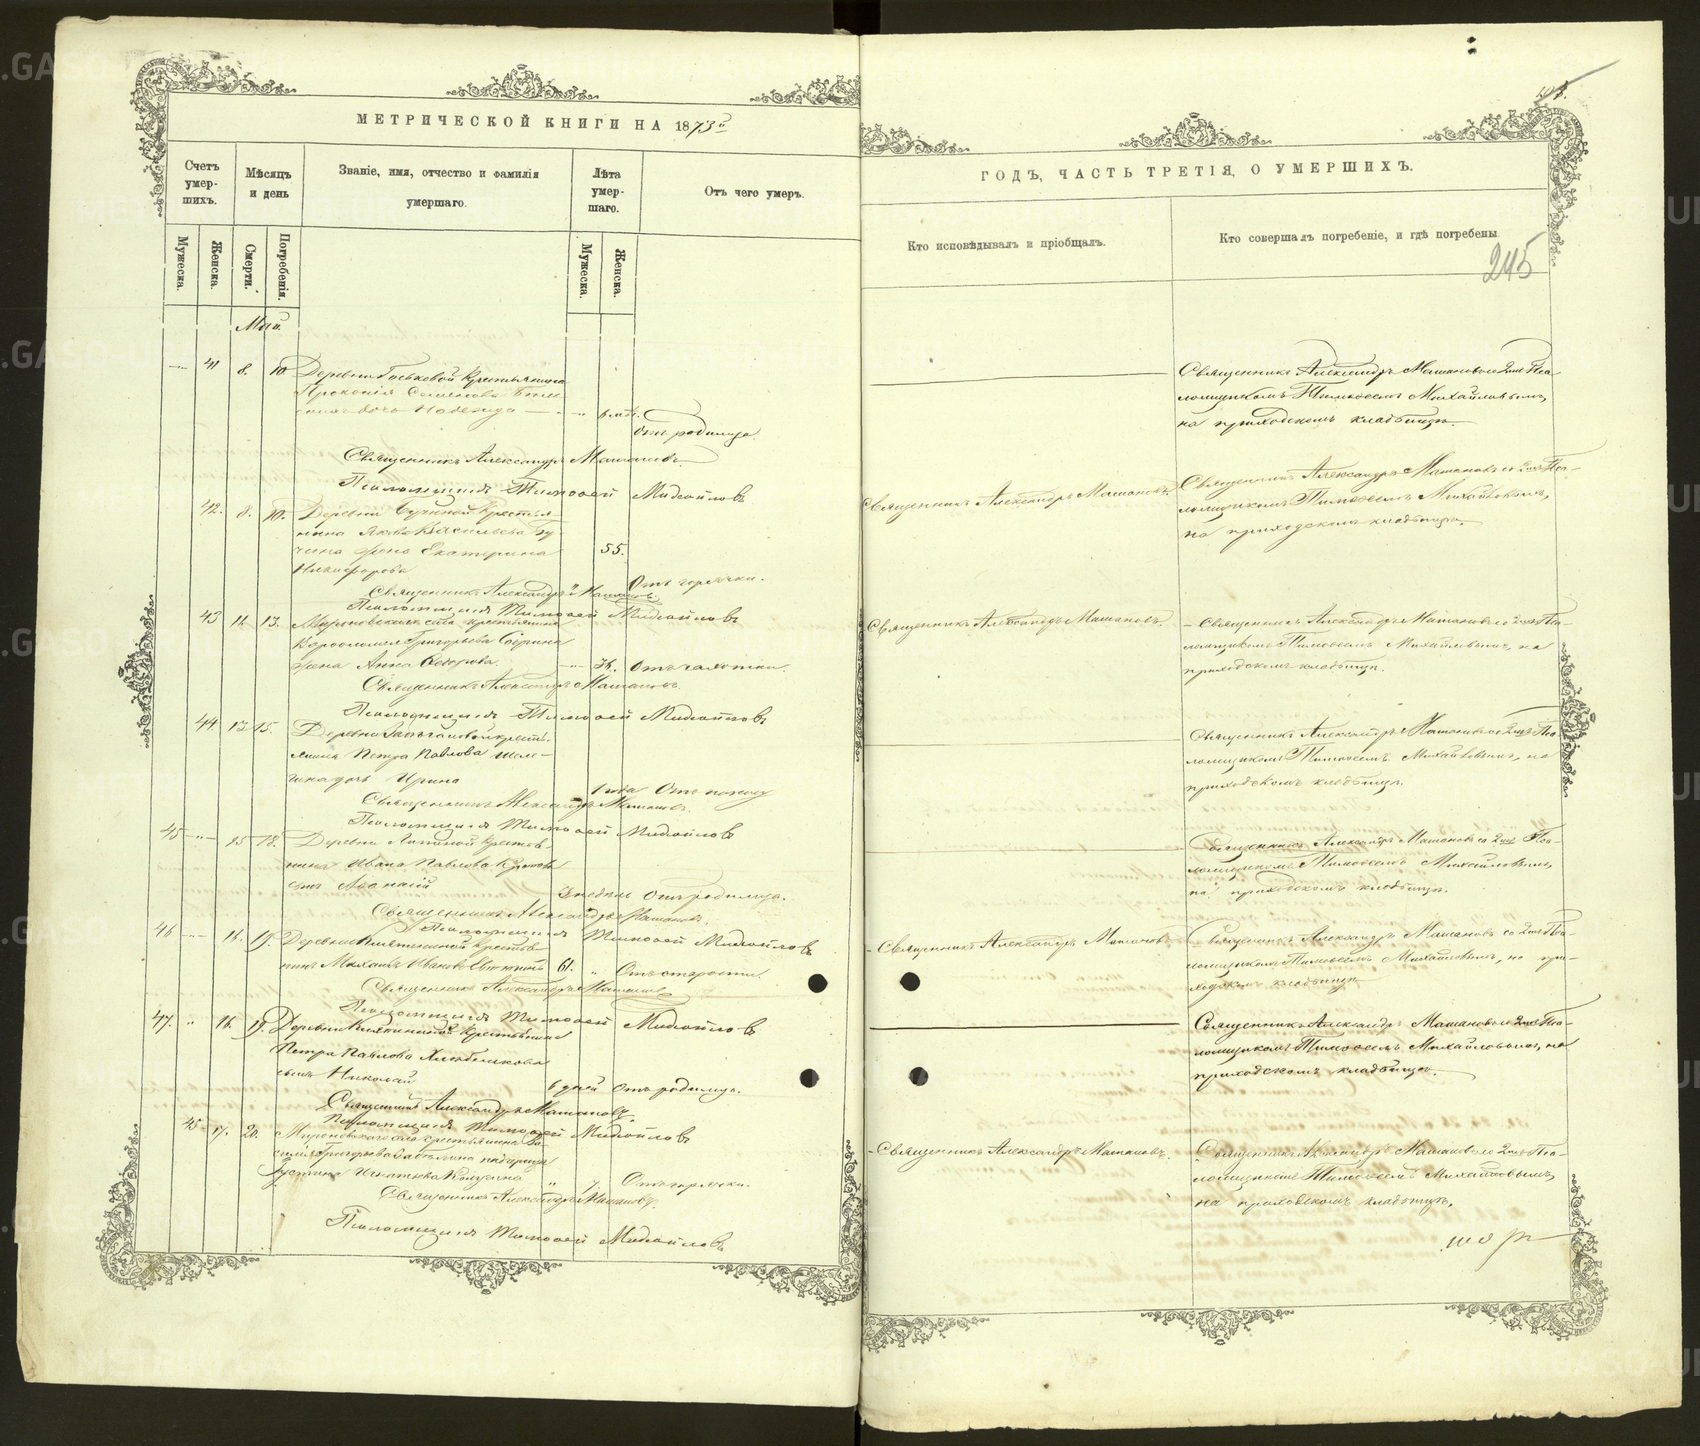 МЕТРИЧЕСКОЙ КНИГИ НА 1873й
Счетъ умер-шихъ.
Мѣсяцъ и день
Званіе, имя, отчество и фамилія умершаго.
Лѣта умер-шаго.
Отъ чего умеръ.
Мужеска.
Женска.
Смерти.
Погребенія.
Мужеска.
Женска.
Май.
41 8. 10 Деревни крестьянина
Прокопія Семенова
дочь Надежда 6 мѣс.
Отъ родимца.
Священникъ Александръ Машановъ.
Псаломщикъ Тимоѳей Михайловъ
42. 8. 10. Деревни крестья-
нина Якова Васильева
жена Екатерина 55.
Никифорова
Отъ горячки.
Священникъ Александръ Машановъ.
Псаломщикъ Тимоѳей Михайловъ
43 11. 13. Мироновскаго села крестьянина
Варѳоломея Григорьева
жена Анна Ѳедорова. Отъ чахотки.
Священникъ Александръ Машановъ.
Псаломщикъ Тимоѳей Михайловъ
44 13 15. Деревни крестья-
нина Петра Павлова
дочь Ирина
1 года Отъ поносу
Священникъ Александръ Машановъ.
Псаломщикъ Тимоѳей Михайловъ
45 15 18. Деревни Липиной крестья-
нина Ивана Павлова
сынъ Аѳанасій
Отъ родимца.
Священникъ Александръ Машановъ.
Псаломщикъ Тимоѳей Михайловъ
46 16. 19. Деревни крестья-
нинъ Михаилъ Ивановъ 61. Отъ старости.
Священникъ Александръ Машановъ
Псаломщикъ Тимоѳей Михайловъ
47. 16. 19. Деревни крестьянина
Петра Павлова
сынъ Николай
6 дней Отъ родимца.
Священникъ Александръ Машановъ
Псаломщикъ Тимоѳей Михайловъ
45 17. 20. Мироновскаго села крестьянина
Григорьева
Игнатьева
7. Отъ горячки.
Священникъ Александръ Машановъ.
Псаломщикъ Тимоѳей Михайловъ
ГОДЪ, ЧАСТЬ ТРЕТІЯ, О УМЕРШИХЪ.
Кто исповѣдывалъ и пріобщалъ.
Кто совершалъ погребеніе, и гдѣ погребены
245
Священникъ Александръ Машановъ со Пса-
ломщикомъ Тимоѳеемъ Михайловымъ,
на приходскомъ кладбищѣ.
Священникъ Александръ Машановъ.
Священникъ Александръ Машановъ со Пса-
ломщикомъ Тимоѳеемъ Михайловымъ,
на приходскомъ кладбищѣ.
Священникъ Александръ Машановъ.
Священникъ Александръ Машановъ со Пса-
ломщикомъ Тимоѳеемъ Михайловымъ, на
приходскомъ кладбищѣ.
Священникъ Александръ Машановъ со Пса-
ломщикомъ Тимоѳеемъ Михайловымъ, на
приходскомъ кладбищѣ.
Священникъ Александръ Машановъ со Пса-
ломщикомъ Тимоѳеемъ Михайловымъ,
на приходскомъ кладбищѣ.
Священникъ Александръ Машановъ
Священникъ Александръ Машановъ со Пса-
ломщикомъ Тимоѳеемъ Михайловымъ, на при-
ходскомъ кладбищѣ
Священникъ Александръ Машановъ со Пса-
ломщикомъ Тимоѳеемъ Михайловымъ, на
приходскомъ кладбищѣ.
Священникъ Александръ Машановъ.
Священникъ Александръ Машановъ со Пса-
ломщикомъ Тимоѳеемъ Михайловымъ,
на приходскомъ кладбищѣ.